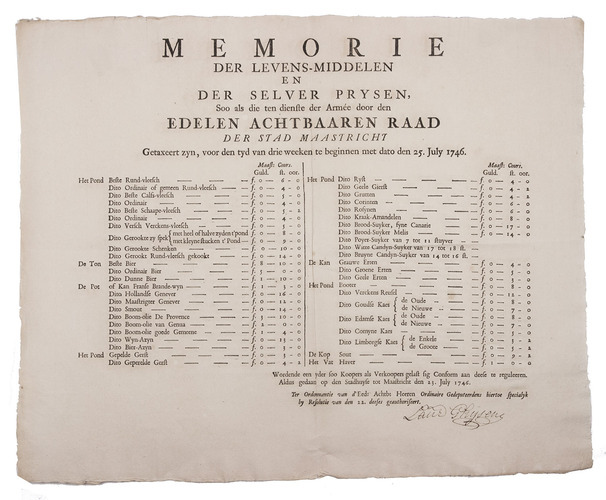 MEMORIE
DER LEVENS-MIDDELEN
EN
DER SELVER PRYSEN,
Soo als die ten dienste der Armée door den
EDELEN ACHTBAAREN RAAD
DER STAD MAASTRICHT
Getaxeert zyn, voor den tyd van drie weeken te beginnen met dato den 25. July 1746.
Maast: Cours.
Guld. st. oor.
Het Pond Beste Rund-vleesch f. 0 — 6 - 0
Dito Ordinair of gemeen Rund-vleesch f. 0 — 4 - 0
Dito Beste Calfs-vleesch f. 0 — 5 - 0
Dito Ordinair f. 0 — 4 - 0
Dito Beste Schaape-vleesch f. 0 — 5 - 2
Dito Ordinair f. 0 — 4 - 0
Dito Versch Verckens-vleesch f. 0 — 5 - 0
Dito Gerooktezy spek met heel of halve zyden t'pond f. 0 — 8 - 0
met kleyne stucken t' Pond f. 0 — 9 - 0
Dito Gerookte Schenken f. 0 — 10 - 0
Dito Gerookt Rund-vleesch gekookt f. 0 — 14 - 0
De Ton Beste Bier f. 8 — 10 - 0
Dito Ordinair Bier f. 5 — 0 - 0
Dito Dunne Bier f. 2 — 10 - 0
De Pot of Kan Franse Brande-wyn f. 1 — 5 - 0
Dito Hollandse Genever f. 0 — 16 - 0
Dito Maastrigter Genever f. 0 — 12 - 0
Dito Smout f. 0 — 14 - 0
Dito Boom-olie De Provence f. 5 — 10 - 0
Dito Boom-olie van Genua f. 2 — 0 - 0
Dito Boom-olie goede Gemeene f. 1 — 4 - 0
Dito Wyn-Azyn f. 0 — 15 - 0
Dito Bier-Azyn f. 0 — 5 - 0
Het Pond Gepelde Gerst f. 0 — 3 - 0
Dito Geperelde Gerst f. 0 — 4 - 2
Maast: Cours.
Guld. st. oor.
Het Pond Ryst f. 0 — 4 - 0
Dito Geele Gierst f. 0 — 4 - 2
Dito Grutten f. 0 — 4 - 2
Dito Corinten f. 0 — 6 - 0
Dito Rosynen f. 0 — 6 - 0
Dito Kraak-Amandelen f. 0 — 8 - 0
Dito Brood-Suyker, fyne Canarie f. 0 — 17 - 0
Dito Brood-Suyker Melis f. 0 — 14 - 0
Dito Poyer-Suyker van 7 tot 11 stuyver
Dito Witte Candyn-Suyker van 17 tot 18 st.
Dito Bruyne Candyn-Suyker van 14 tot 16 st.
De Kan Graauwe Erten f. 0 — 4 - 0
Dito Groene Erten f. 0 — 5 - 0
Dito Geele Erten f. 0 — 3 - 0
Het Pond Booter f. 0 — 8 - 0
Dito Verckens Reusel f. 0 — 11 - 0
Dito Goudse Kaes de Oude f. 0 — 8 - 0
de Nieuwe f. 0 — 7 - 0
Dito Edamse Kaes de Oude f. 0 — 8 - 0
de Nieuwe f. 0 — 7 - 0
Dito Comyne Kaes f. 0 — 5 - 0
Dito Limborgse Kaes de Enkelde f. 0 — 5 - 0
de Groote f. 0 — 5 - 2
De Kop Sout f. 0 — 9 - 2
Het Vat Haver f. 1 — 2 - 0
Wordende een yder soo Koopers als Verkoopers gelast sig Conform aan deese te reguleeren.
Aldus gedaan op den Stadhuyse tot Maastricht den 23. July 1746.
Ter Ordonnantie van d'Eed: Achtb: Heeren Ordinaire Gedeputeerdens hiertoe specialyk
by Resolutie van den 22. deeses geauthoriseert.